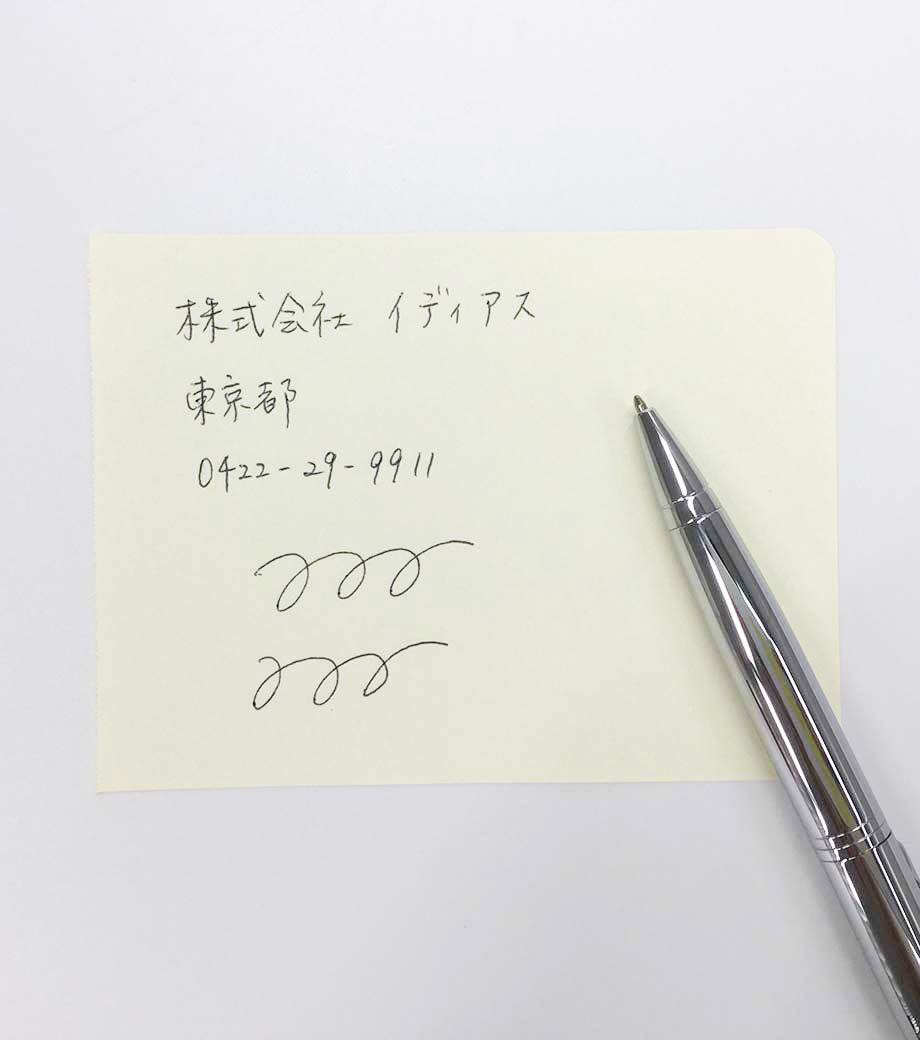 株式会社 イディアス
東京都
0422-29-9911